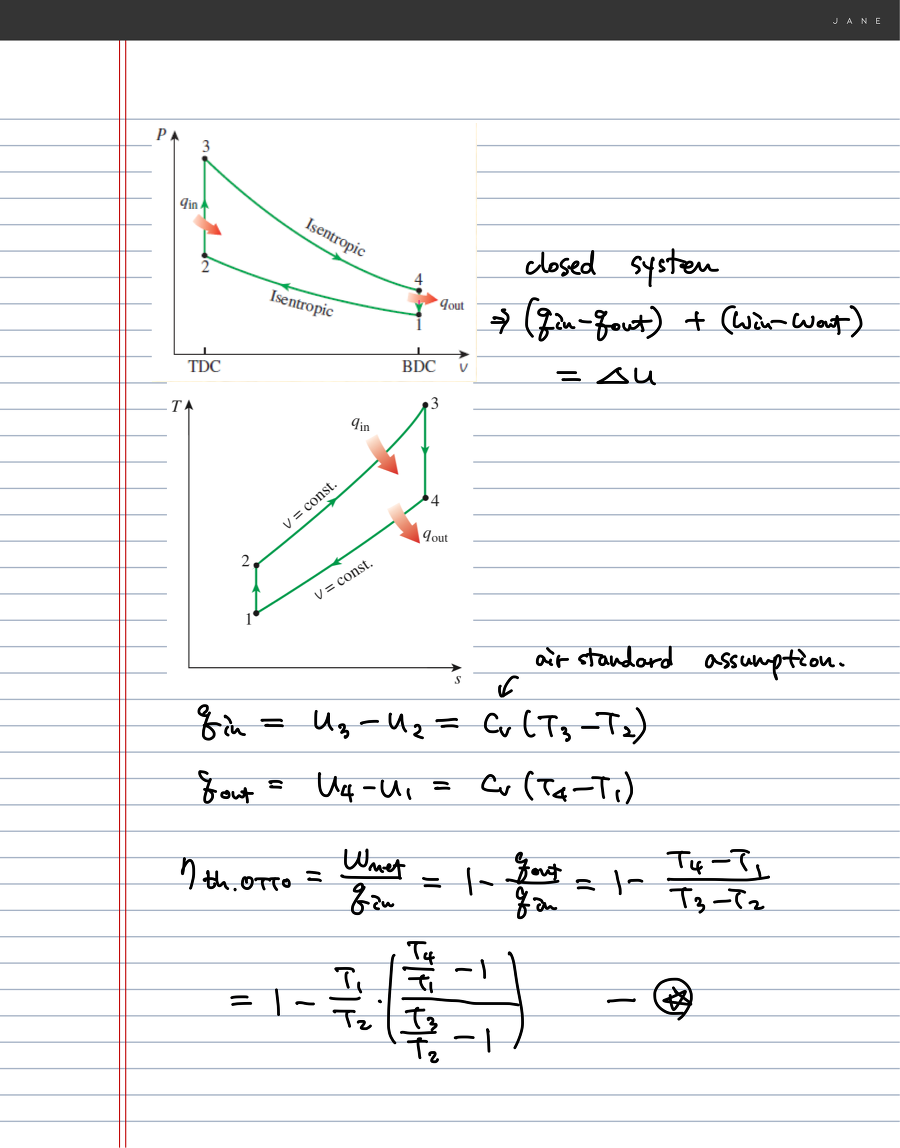 JANE
P
3
q_in
Isentropic
2
4
q_out
Isentropic
1
TDC BDC v
closed system
⇒ (q_in - q_out) + (w_in - w_out)
= Δu
T
3
q_in
v = const.
4
q_out
2
v = const.
1
s
air standard assumption.
q_in = u_3 - u_2 = C_v (T_3 - T_2)
q_out = u_4 - u_1 = C_v (T_4 - T_1)
η_th.OTTO = w_net / q_in = 1 - q_out / q_in = 1 - (T_4 - T_1) / (T_3 - T_2)
= 1 - T_1/T_2 · ((T_4/T_1 - 1) / (T_3/T_2 - 1)) - ⍟